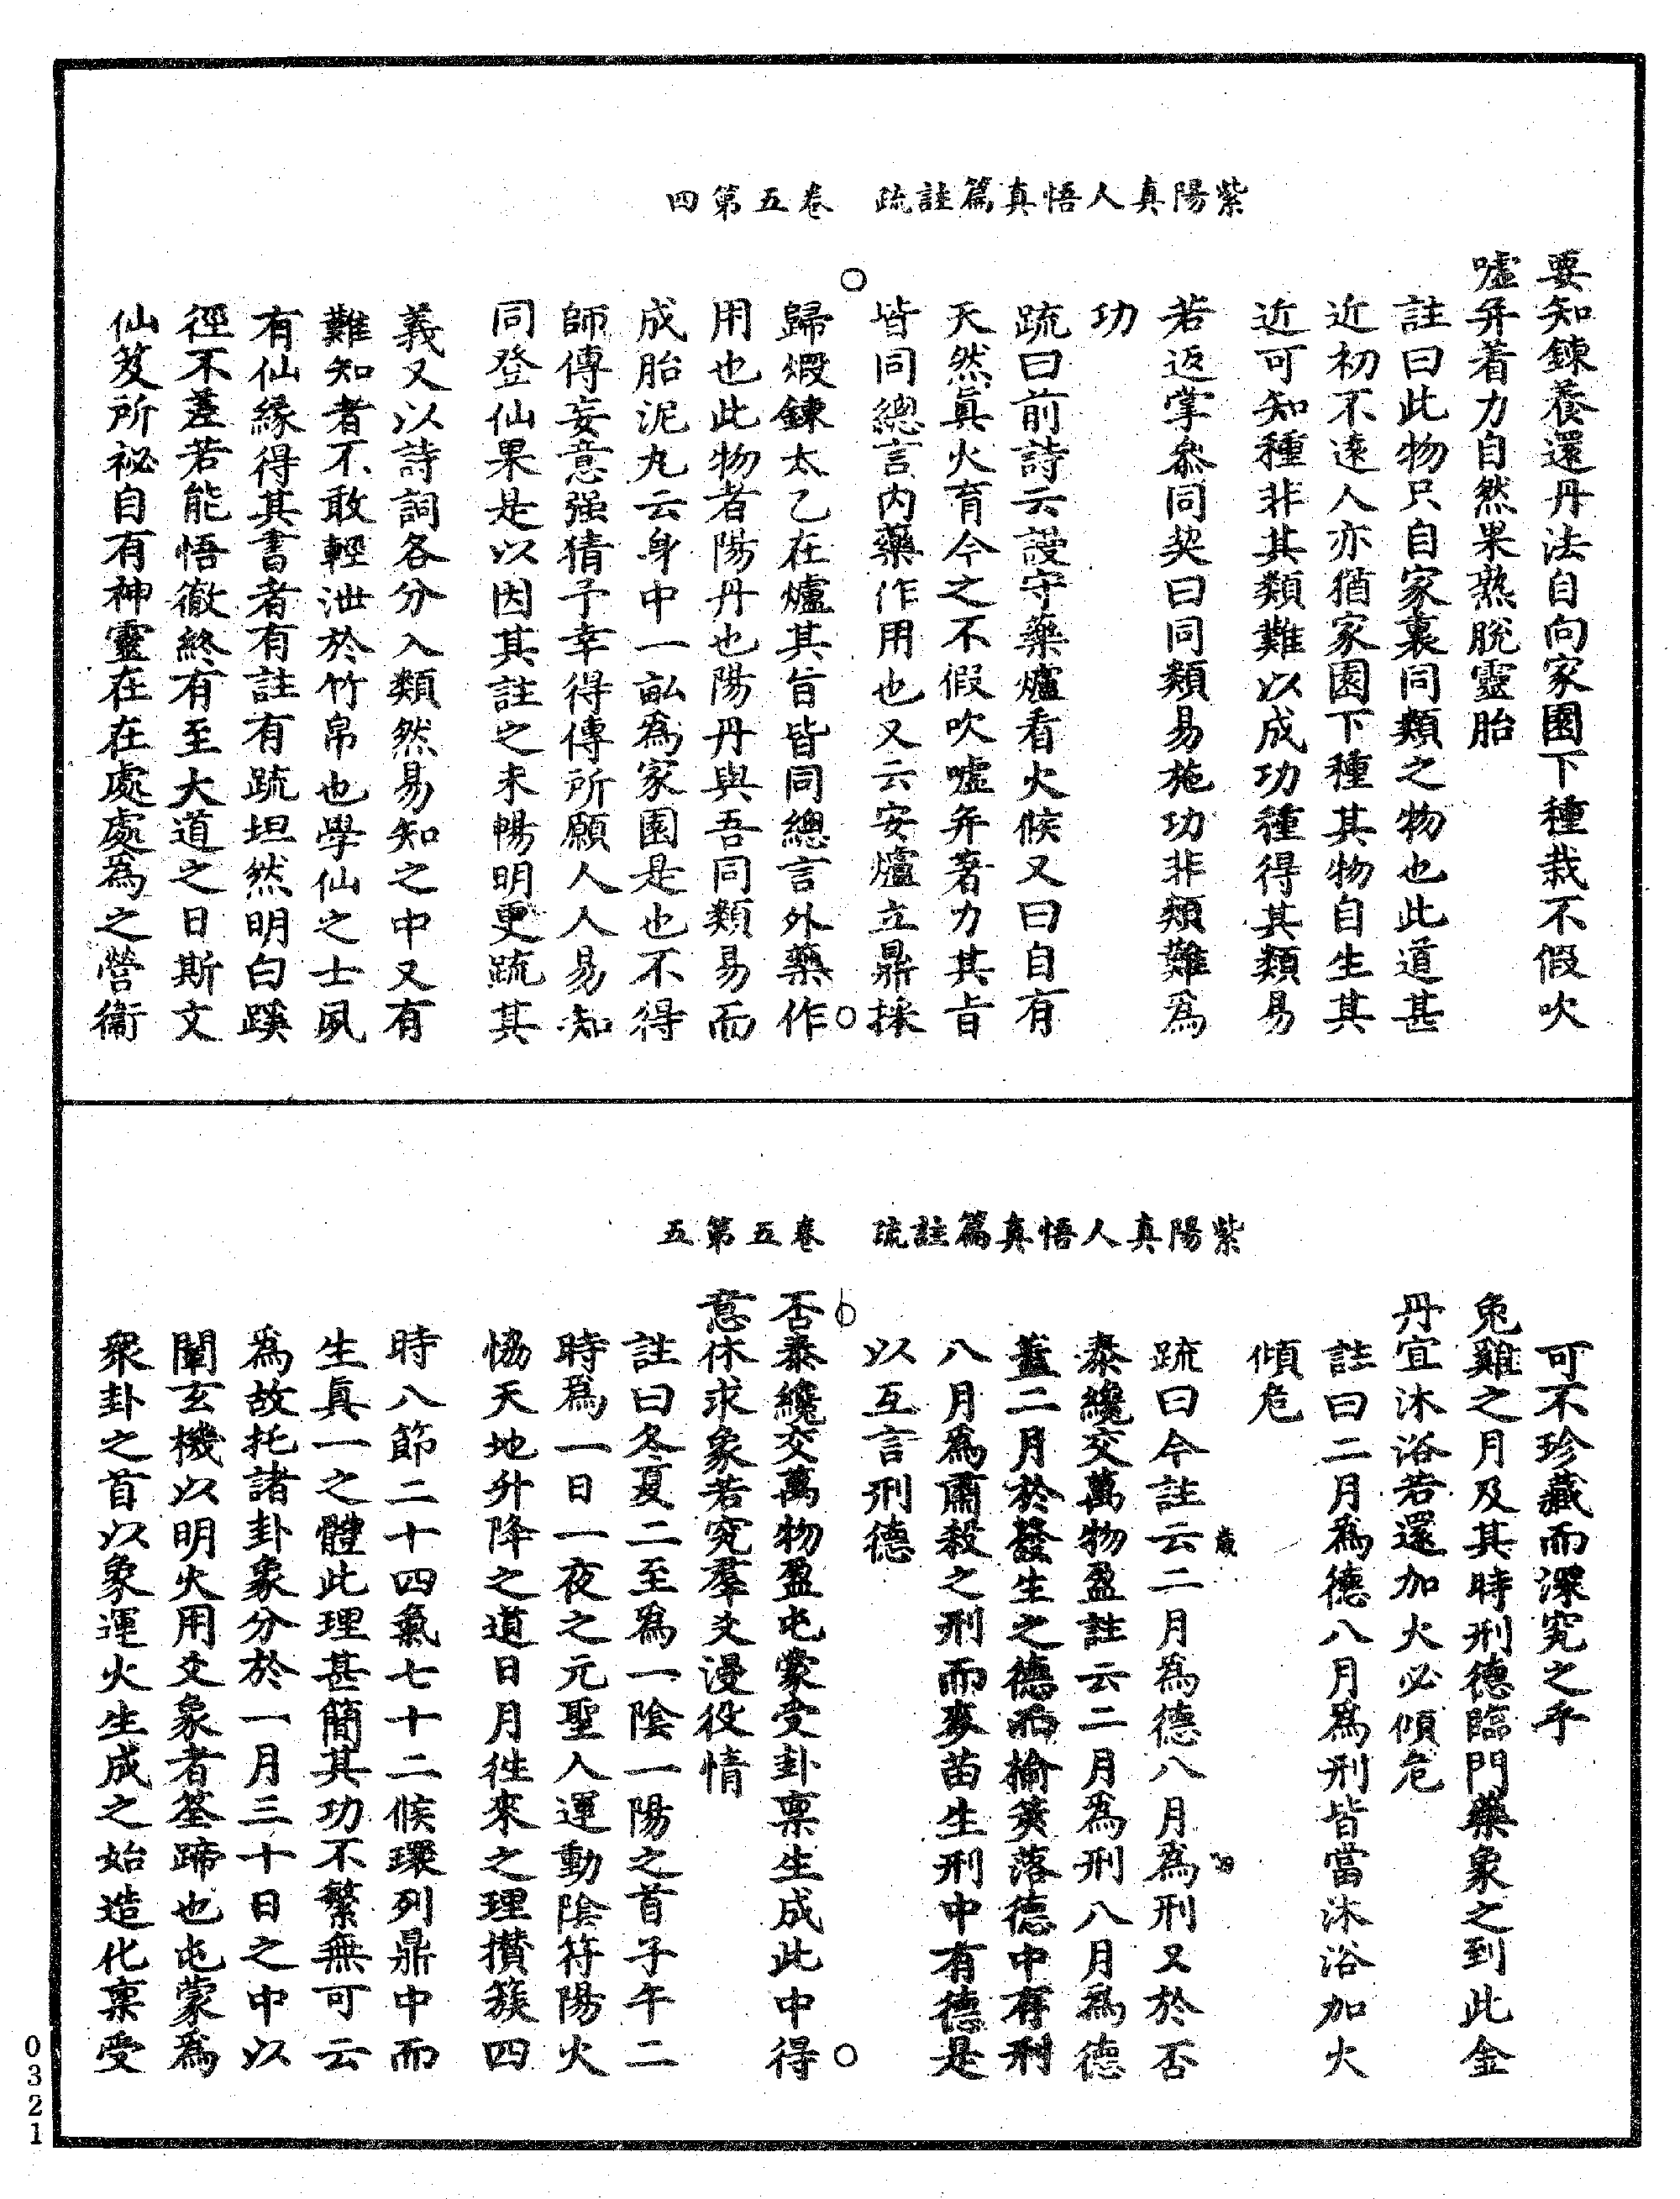 紫陽真人悟真篇註疏　卷五第四
要知鍊養還丹法自向家園下種栽不假吹
噓并着力自然果熟脫靈胎
註曰此物只自家裏同類之物也此道甚
近初不遠人亦猶家園下種其物自生其
近可知種非其類難以成功種得其類易
若返掌叅同契曰同類易施功非類難爲
功
疏曰前詩云謾守藥爐看火候又曰自有
天然眞火育今之不假吹噓并著力其旨
皆同總言内藥作用也又云安爐立鼎採
歸煅鍊太乙在爐其旨皆同總言外藥作
用也此物者陽丹也陽丹與吾同類易而
成胎泥丸云身中一畝爲家園是也不得
師傳妄意强猜予幸得傳所願人人易知
同登仙果是以因其註之未暢明更疏其
義又以詩詞各分入類然易知之中又有
難知者不敢輕泄於竹帛也學仙之士夙
有仙緣得其書者有註有疏坦然明白蹊
徑不差若能悟徹終有至大道之日斯文
仙笈所祕自有神靈在在處處為之營衞
紫陽真人悟真篇註疏　卷五第五
可不珍藏而深究之乎
兔雞之月及其時刑德臨門藥象之到此金
丹宜沐浴若還加火必傾危
註曰二月爲德八月爲刑皆當沐浴加火
傾危
疏曰今註云二月爲德八月爲刑又於否
泰纔交萬物盈註云二月爲刑八月爲德
蓋二月於發生之德而榆莢落德中有刑
八月爲肅殺之刑而麥苗生刑中有德是
以互言刑德
否泰纔交萬物盈屯蒙受卦稟生成此中得
意休求象若究羣爻漫役情
註曰冬夏二至爲一陰一陽之首子午二
時爲一日一夜之元聖人運動陰符陽火
恊天地升降之道日月徃來之理攅簇四
時八節二十四氣七十二候環列鼎中而
生眞一之體此理甚簡其功不繁無可云
爲故托諸卦象分於一月三十日之中以
闡玄機以明火用爻象者筌蹄也屯蒙爲
衆卦之首以象運火生成之始造化稟受
0321